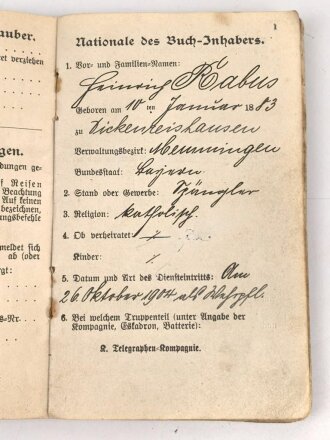 auber.
ret verziehen
gen.
dungen ge-
f Reisen
Beachtung
Auf keinen
bezeichnen,
ungsbefehle
meldet sich
ab (oder
rgt:
s-Nr.
1
Nationale des Buch-Inhabers.
1. Vor- und Familien-Namen:
Heinrich Rabus
Geboren am 10 ten Januar 1883
zu Dickenreishausen
Verwaltungsbezirk: Memmingen
Bundesstaat: Bayern
2. Stand oder Gewerbe: Spängler
3. Religion: katholisch.
4. Ob verheiratet
Kinder:
5. Datum und Art des Diensteintritts: Am
26. Oktober 1904 als Wehrpfl.
6. Bei welchem Truppenteil (unter Angabe der
Kompagnie, Eskadron, Batterie):
K. Telegraphen-Kompagnie.